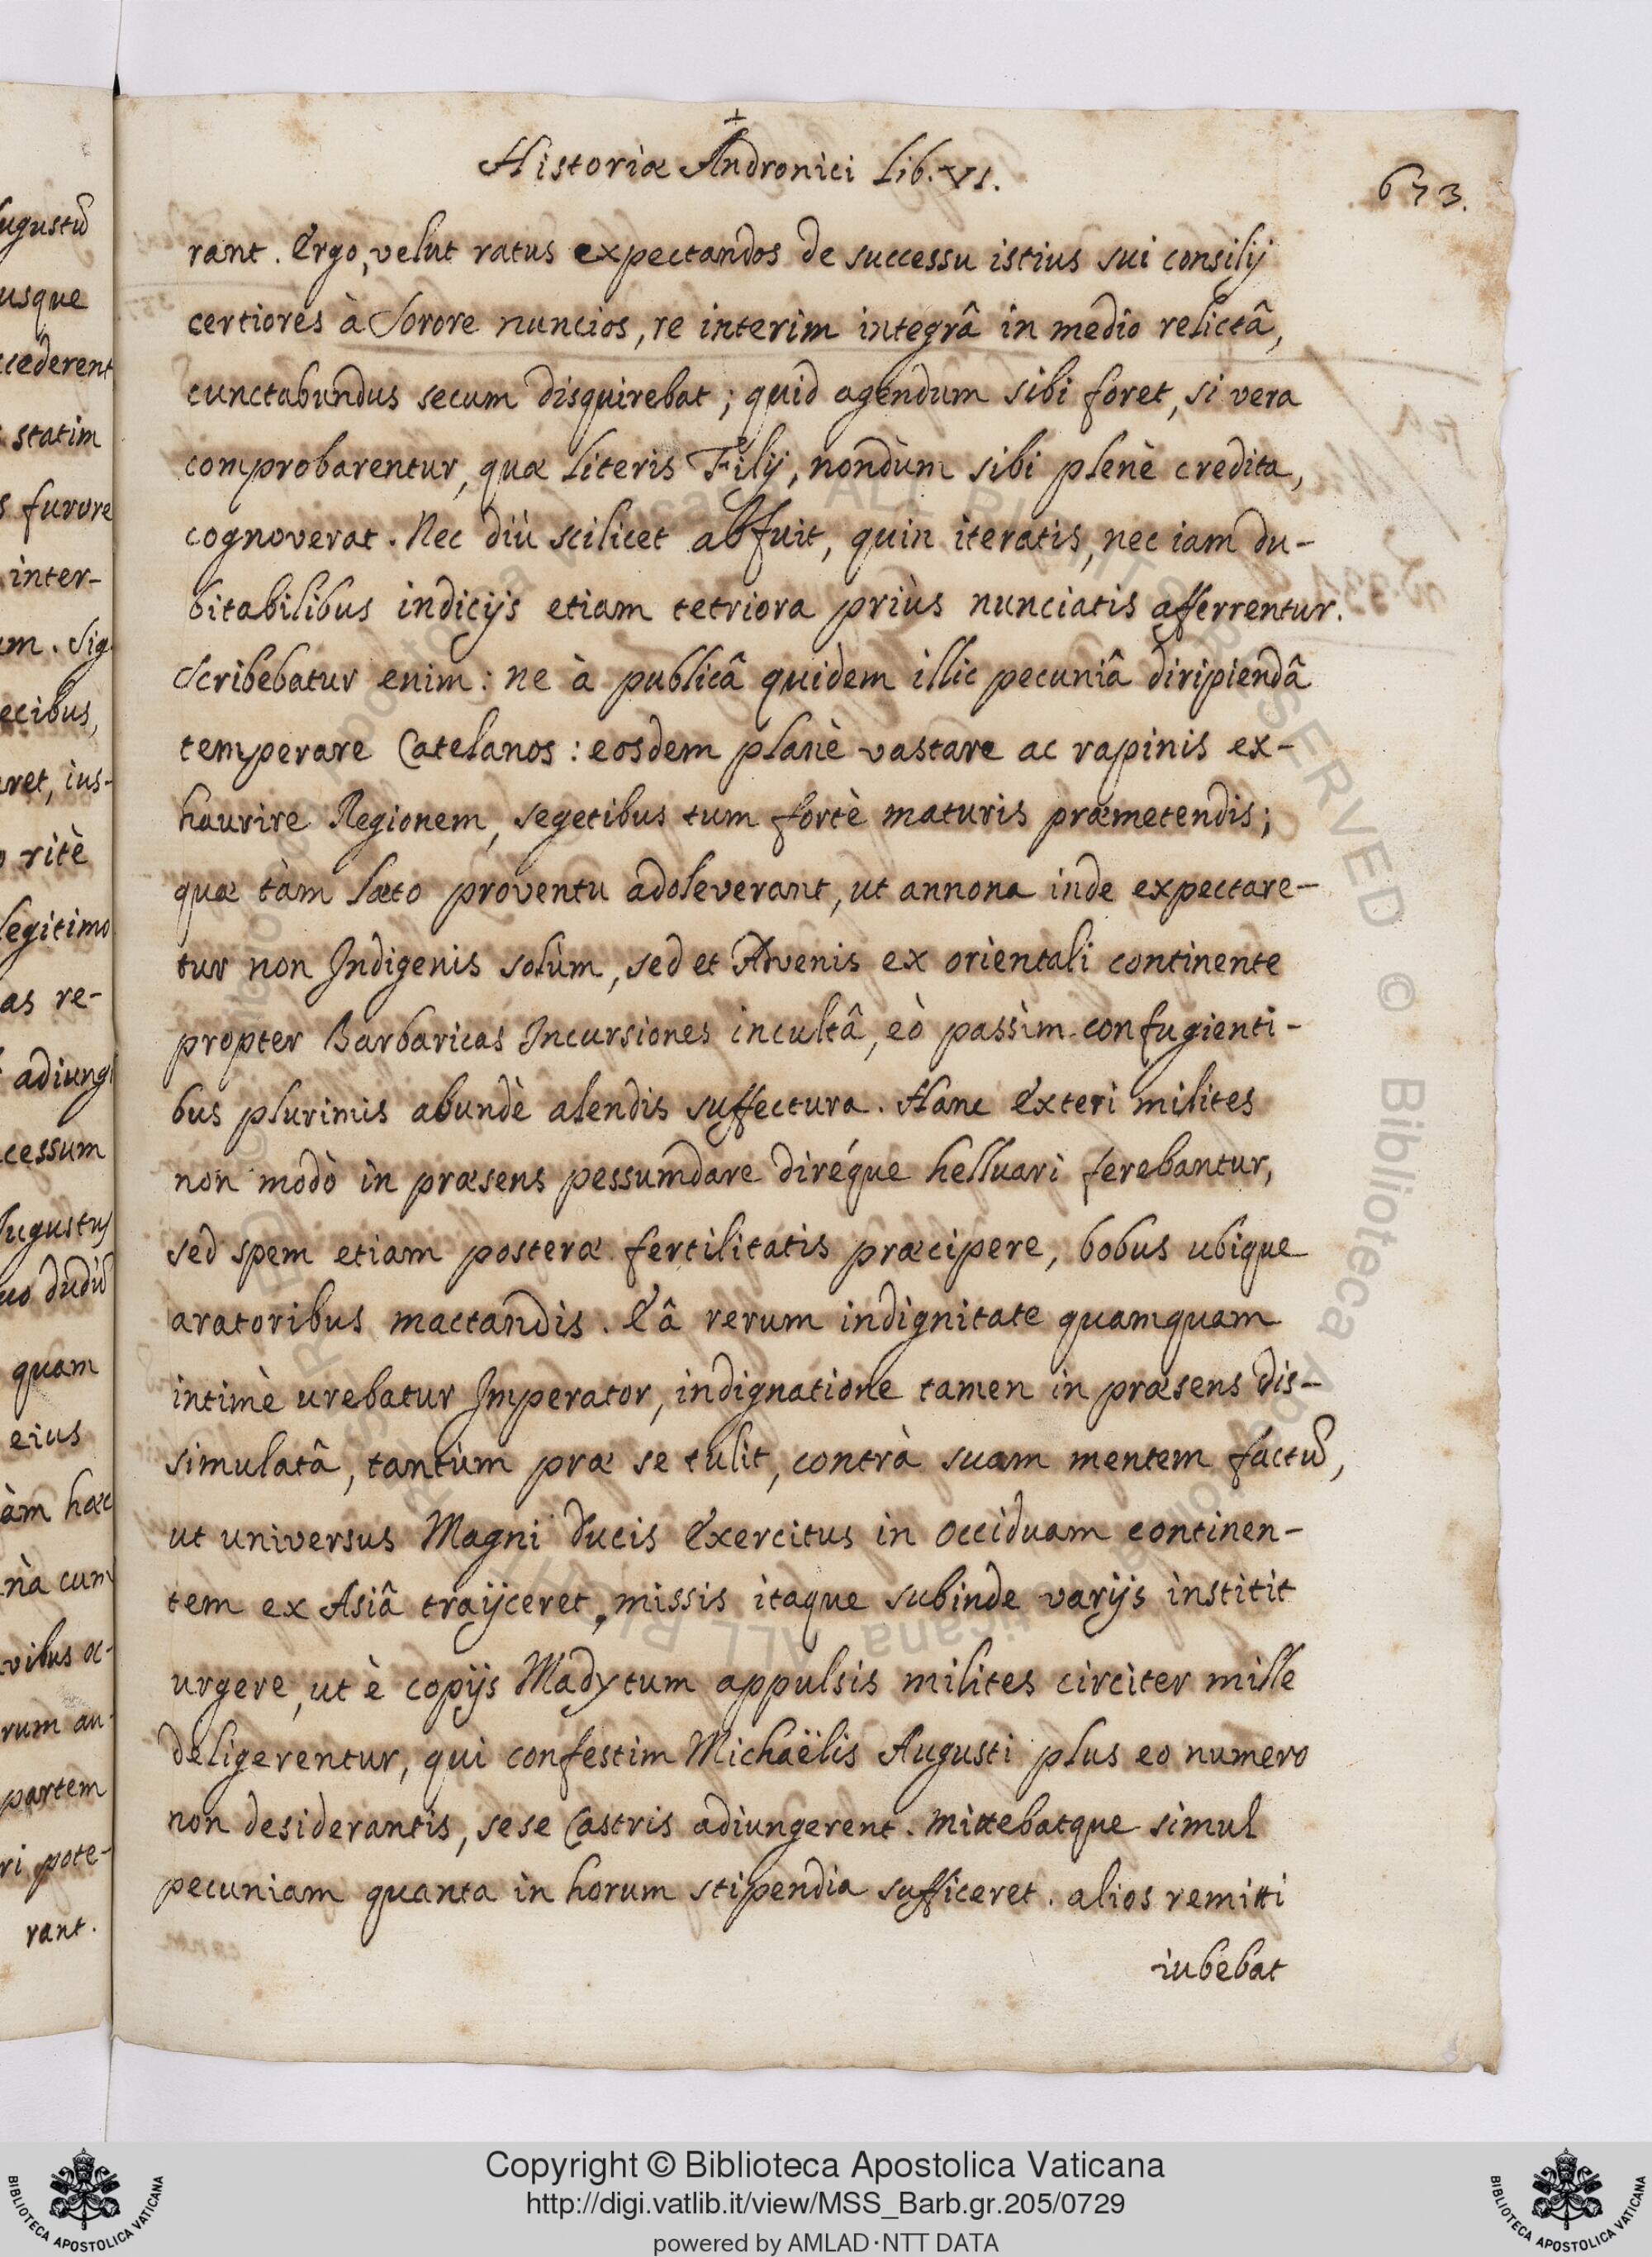 ugustũ
usque
cæderent
statim
s furore
inter-
um. Sig
ecibus,
ret, ius-
rité
legitimo
as re-
adiungi
cessum
Augustus
uo dudũ
quam
eius
àm hæc
nà cum
vibus æ-
rum au-
partem
ri pote-
rant.
+
Historiæ Andronici Lib. VI.
673.
rant. Ergo, velut ratus expectandos de successu istius sui consilij
certiores à Sorore nuncios, re interim integrâ in medio relictâ,
cunctabundus secum disquirebat; quid agendum sibi foret, si vera
comprobarentur, quæ Literis Filij, nondùm sibi plenè credita,
cognoverat. Nec diù scilicet abfuit, quin iteratis, nec iam du-
bitabilibus indicijs etiam tetriora priùs nunciatis afferrentur.
Scribebatur enim: ne à publicâ quidem illic pecuniâ diripiendâ
temperare Catelanos: eosdem planè vastare ac rapinis ex-
haurire Regionem, segetibus tum fortè maturis præmetendis;
quæ tàm læto proventu adoleverant, ut annona inde expectare-
tur non Indigenis solùm, sed et Advenis ex orientali continente
propter Barbaricas Incursiones incultâ, eò passim confugienti-
bus plurimis abundè alendis suffectura. Hanc Exteri milites
non modò in præsens pessumdare diréque helluari ferebantur,
sed spem etiam posteræ fertilitatis præcipere, bobus ubique
aratoribus mactandis. Eâ rerum indignitate quamquam
intimè urebatur Imperator, indignatione tamen in præsens dis-
simulatâ, tantùm præ se tulit, contrà suam mentem factũ,
ut universus Magni Ducis Exercitus in Occiduam continen-
tem ex Asiâ traijceret, missis itaque subinde varijs institit
urgere, ut è copijs Madytum appulsis milites circiter mille
deligerentur, qui confestim Michaëlis Augusti plus eo numero
non desiderantis, sese Castris adiungerent. Mittebatque simul
pecuniam quanta in horum stipendia sufficeret. alios remitti
iubebat
Copyright © Biblioteca Apostolica Vaticana
http://digi.vatlib.it/view/MSS_Barb.gr.205/0729
powered by AMLAD·NTT DATA
BIBLIOTECA APOSTOLICA VATICANA
BIBLIOTECA APOSTOLICA VATICANA